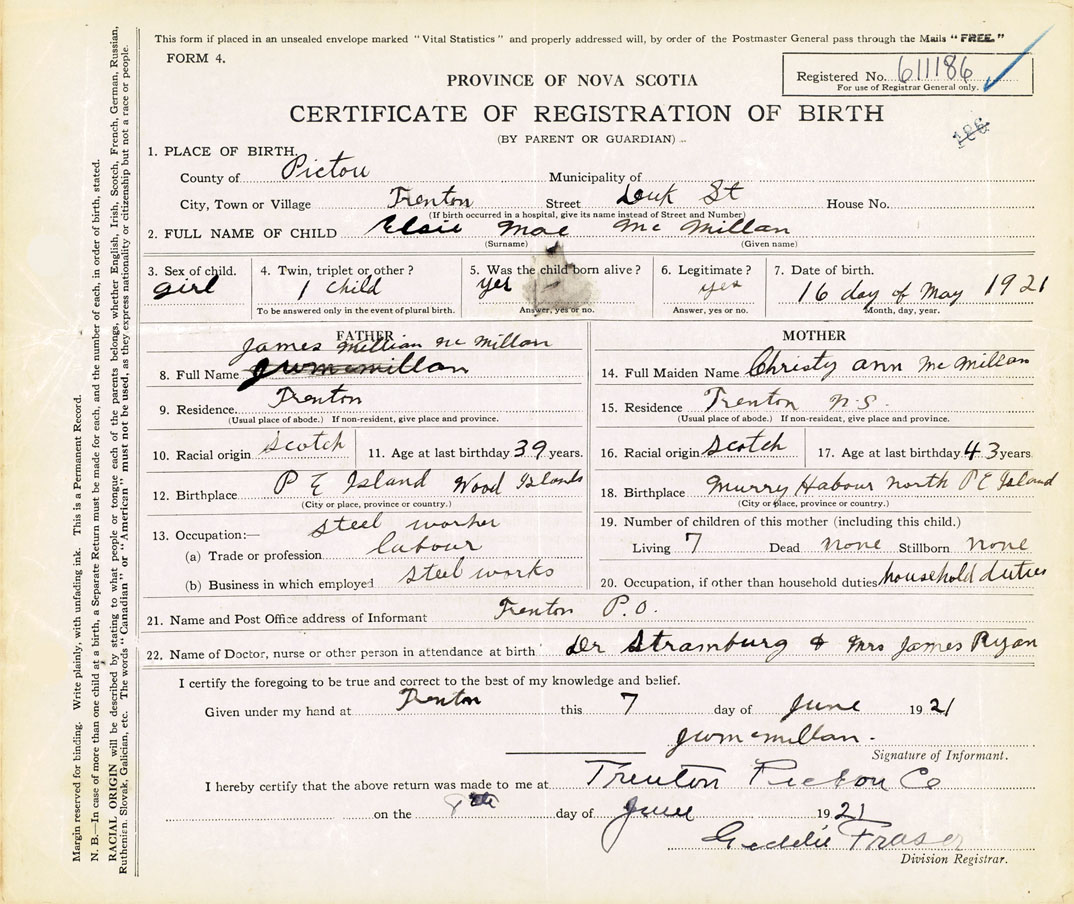 This form if placed in an unsealed envelope marked "Vital Statistics" and properly addressed will, by order of the Postmaster General pass through the Mails "FREE."
FORM 4.
Registered No. 611186
For use of Registrar General only.
PROVINCE OF NOVA SCOTIA
CERTIFICATE OF REGISTRATION OF BIRTH
(BY PARENT OR GUARDIAN)
186
1. PLACE OF BIRTH,
County of Pictou Municipality of
City, Town or Village Trenton Street St House No.
(If birth occurred in a hospital, give its name instead of Street and Number)
2. FULL NAME OF CHILD Elsie Mae Mc Millan
(Surname) (Given name)
3. Sex of child. girl
4. Twin, triplet or other? 1 child
To be answered only in the event of plural birth.
5. Was the child born alive? yes
Answer, yes or no.
6. Legitimate? yes
Answer, yes or no.
7. Date of birth. 16 day of May 1921
Month, day, year.
FATHER
James Millian Mc Millan
8. Full Name J W McMillan
9. Residence. Trenton
(Usual place of abode.) If non-resident, give place and province.
10. Racial origin Scotch
11. Age at last birthday 39 years.
12. Birthplace P E Island Wood Islands
(City or place, province or country.)
13. Occupation:— steel worker
(a) Trade or profession labour
(b) Business in which employed steel works
MOTHER
14. Full Maiden Name Christy ann Mc Millan
15. Residence Trenton N.S.
(Usual place of abode.) If non-resident, give place and province.
16. Racial origin Scotch
17. Age at last birthday 43 years
18. Birthplace Murry Habour North P E Island
(City or place, province or country.)
19. Number of children of this mother (including this child.)
Living 7 Dead none Stillborn none
20. Occupation, if other than household duties household duties
21. Name and Post Office address of Informant Trenton P.O.
22. Name of Doctor, nurse or other person in attendance at birth Dr Stramburg & Mrs James Ryan
I certify the foregoing to be true and correct to the best of my knowledge and belief.
Given under my hand at Trenton this 7 day of June 1921
J W McMillan.
Signature of Informant.
I hereby certify that the above return was made to me at Trenton Pictou Co
on the 8th day of June 1921
Geddie Fraser
Division Registrar.
Margin reserved for binding. Write plainly, with unfading ink. This is a Permanent Record.
N. B.—In case of more than one child at a birth, a Separate Return must be made for each, and the number of each, in order of birth, stated.
RACIAL ORIGIN will be described by stating to what people or tongue each of the parents belongs, whether English, Irish, Scotch, French, German, Russian,
Ruthenian, Slovak, Galician, etc. The words "Canadian" or "American" must not be used, as they express nationality or citizenship but not a race or people.